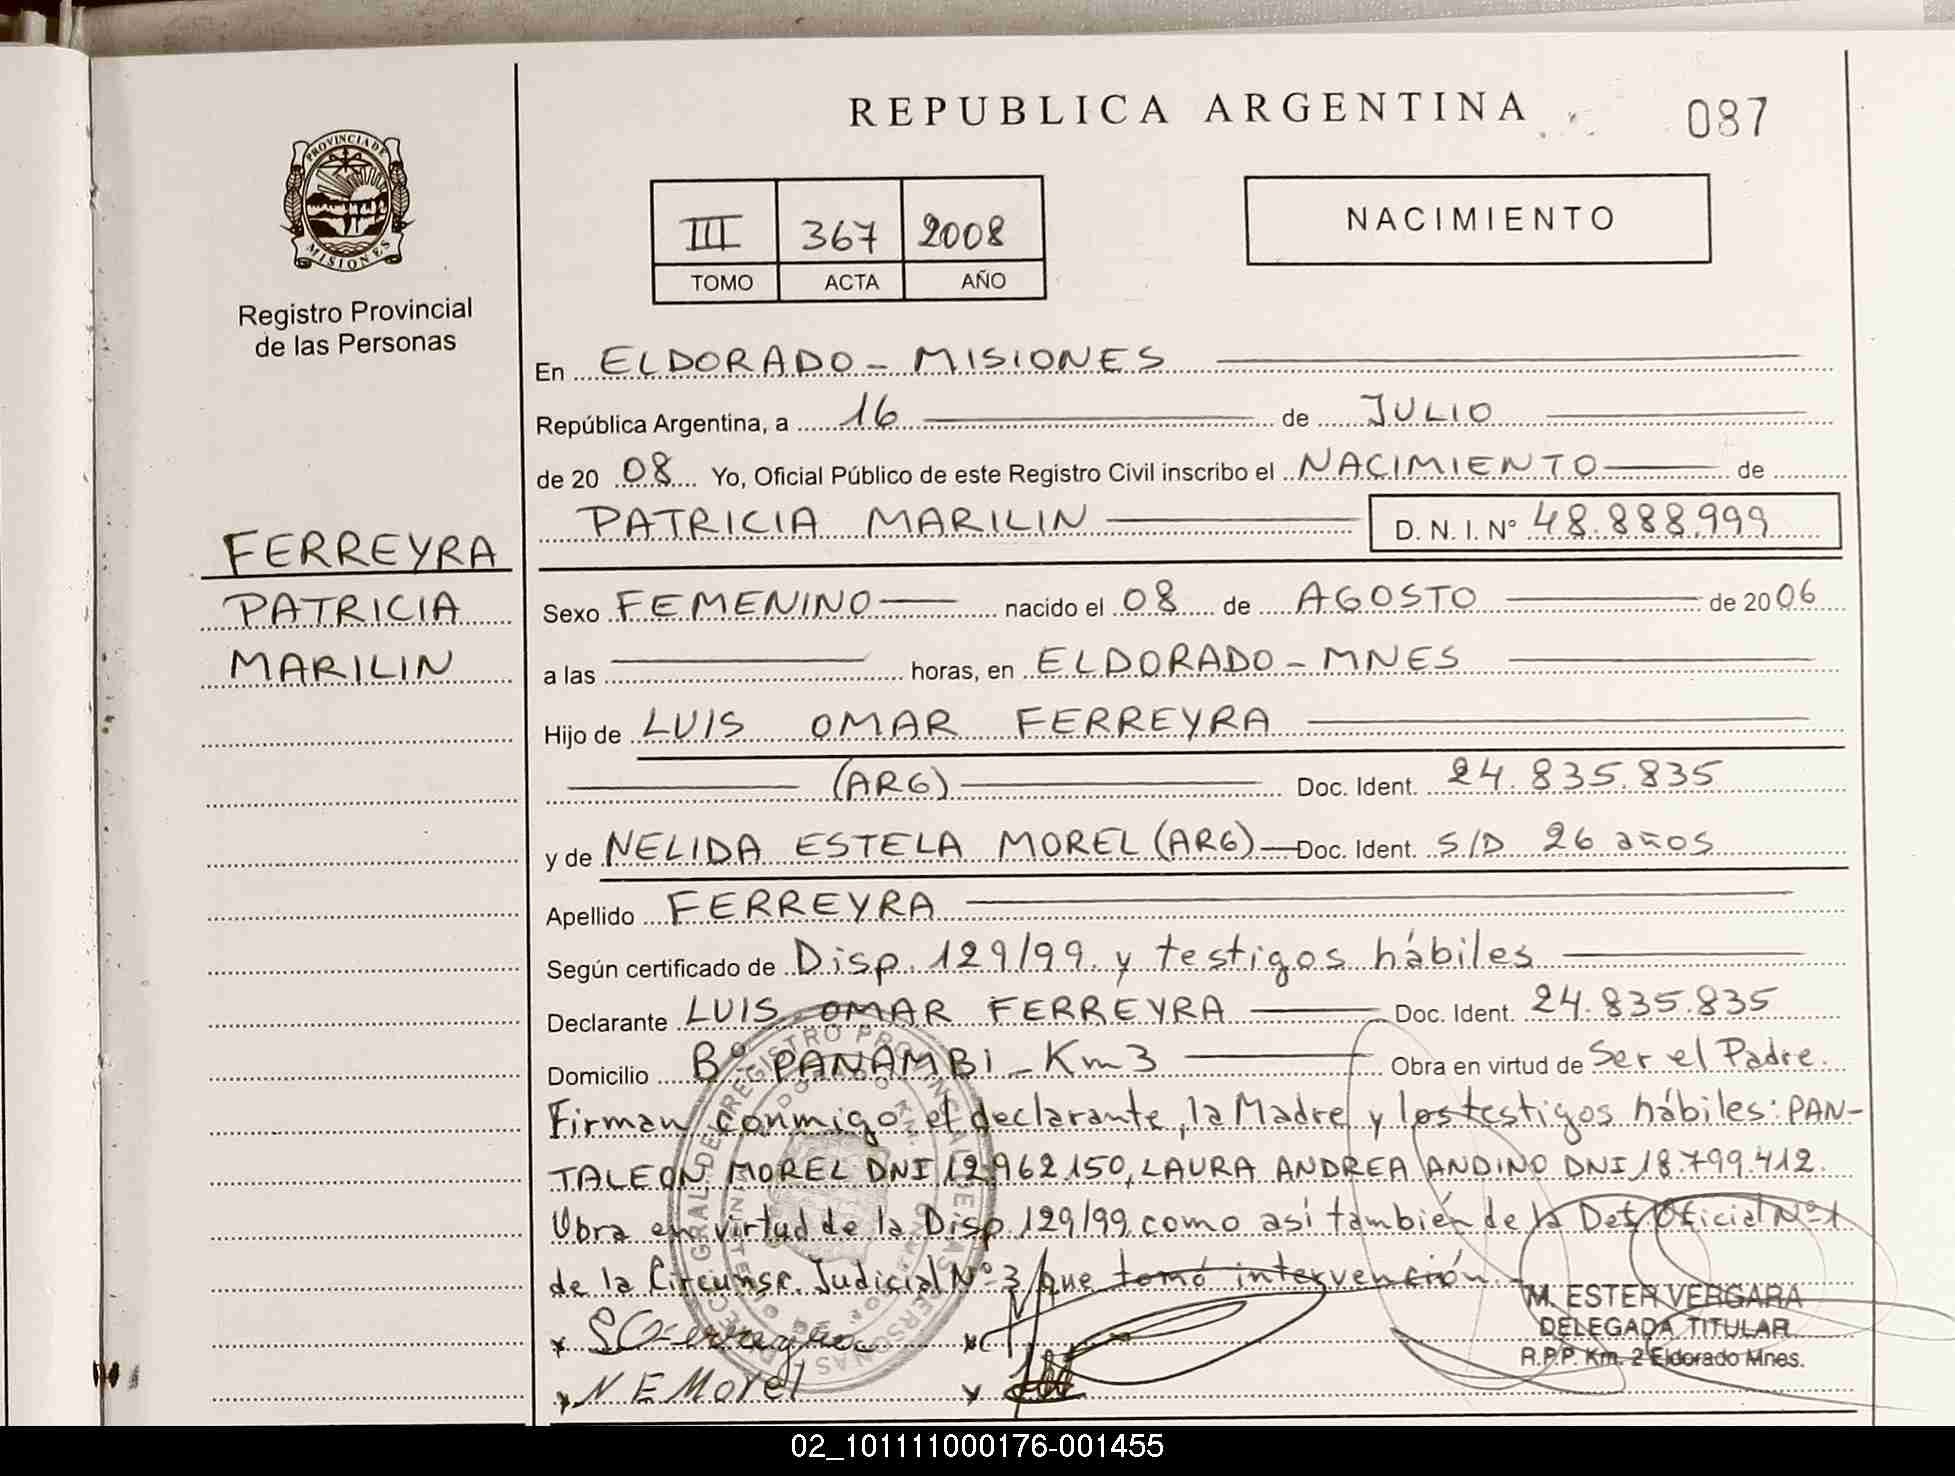 REPUBLICA ARGENTINA
087
PROVINCIA DE
MISIONES
Registro Provincial
de las Personas
III 367 2008
TOMO ACTA AÑO
NACIMIENTO
En ELDORADO - MISIONES
República Argentina, a 16 de JULIO
de 20 08 Yo, Oficial Público de este Registro Civil inscribo el NACIMIENTO de
PATRICIA MARILIN D. N. I. N° 48.888.999
FERREYRA
PATRICIA
MARILIN
Sexo FEMENINO nacido el 08 de AGOSTO de 20 06
a las horas, en ELDORADO - MNES
Hijo de LUIS OMAR FERREYRA
(ARG) Doc. Ident. 24.835.835
y de NELIDA ESTELA MOREL (ARG) Doc. Ident. S/D 26 años
Apellido FERREYRA
Según certificado de Disp. 129/99 y testigos hábiles
Declarante LUIS OMAR FERREYRA Doc. Ident. 24.835.835
Domicilio B° PANAMBI - Km 3 Obra en virtud de Ser el Padre.
Firman conmigo el declarante, la Madre y los testigos hábiles: PAN-
TALEON MOREL DNI 12.962.150, LAURA ANDREA ANDINO DNI 18.799.412.
Obra en virtud de la Disp. 129/99, como así también de la Def. Oficial N° 1
de la Circunsc. Judicial N° 3, que tomó intervención.
x
x N E Morel
M. ESTER VERGARA
DELEGADA TITULAR
R.P.P. Km. 2 Eldorado Mnes.
02_101111000176-001455